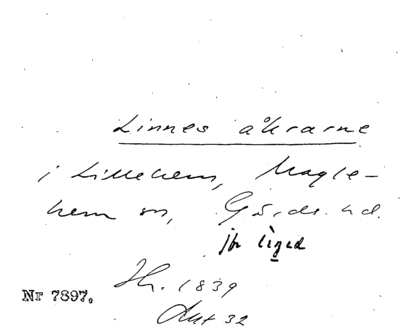 Linnes åkrarne
i Lillehem, Magle-
hem sn, Gärds hd.
jfr
Nr 7897. Sk. 1839
Akt 32